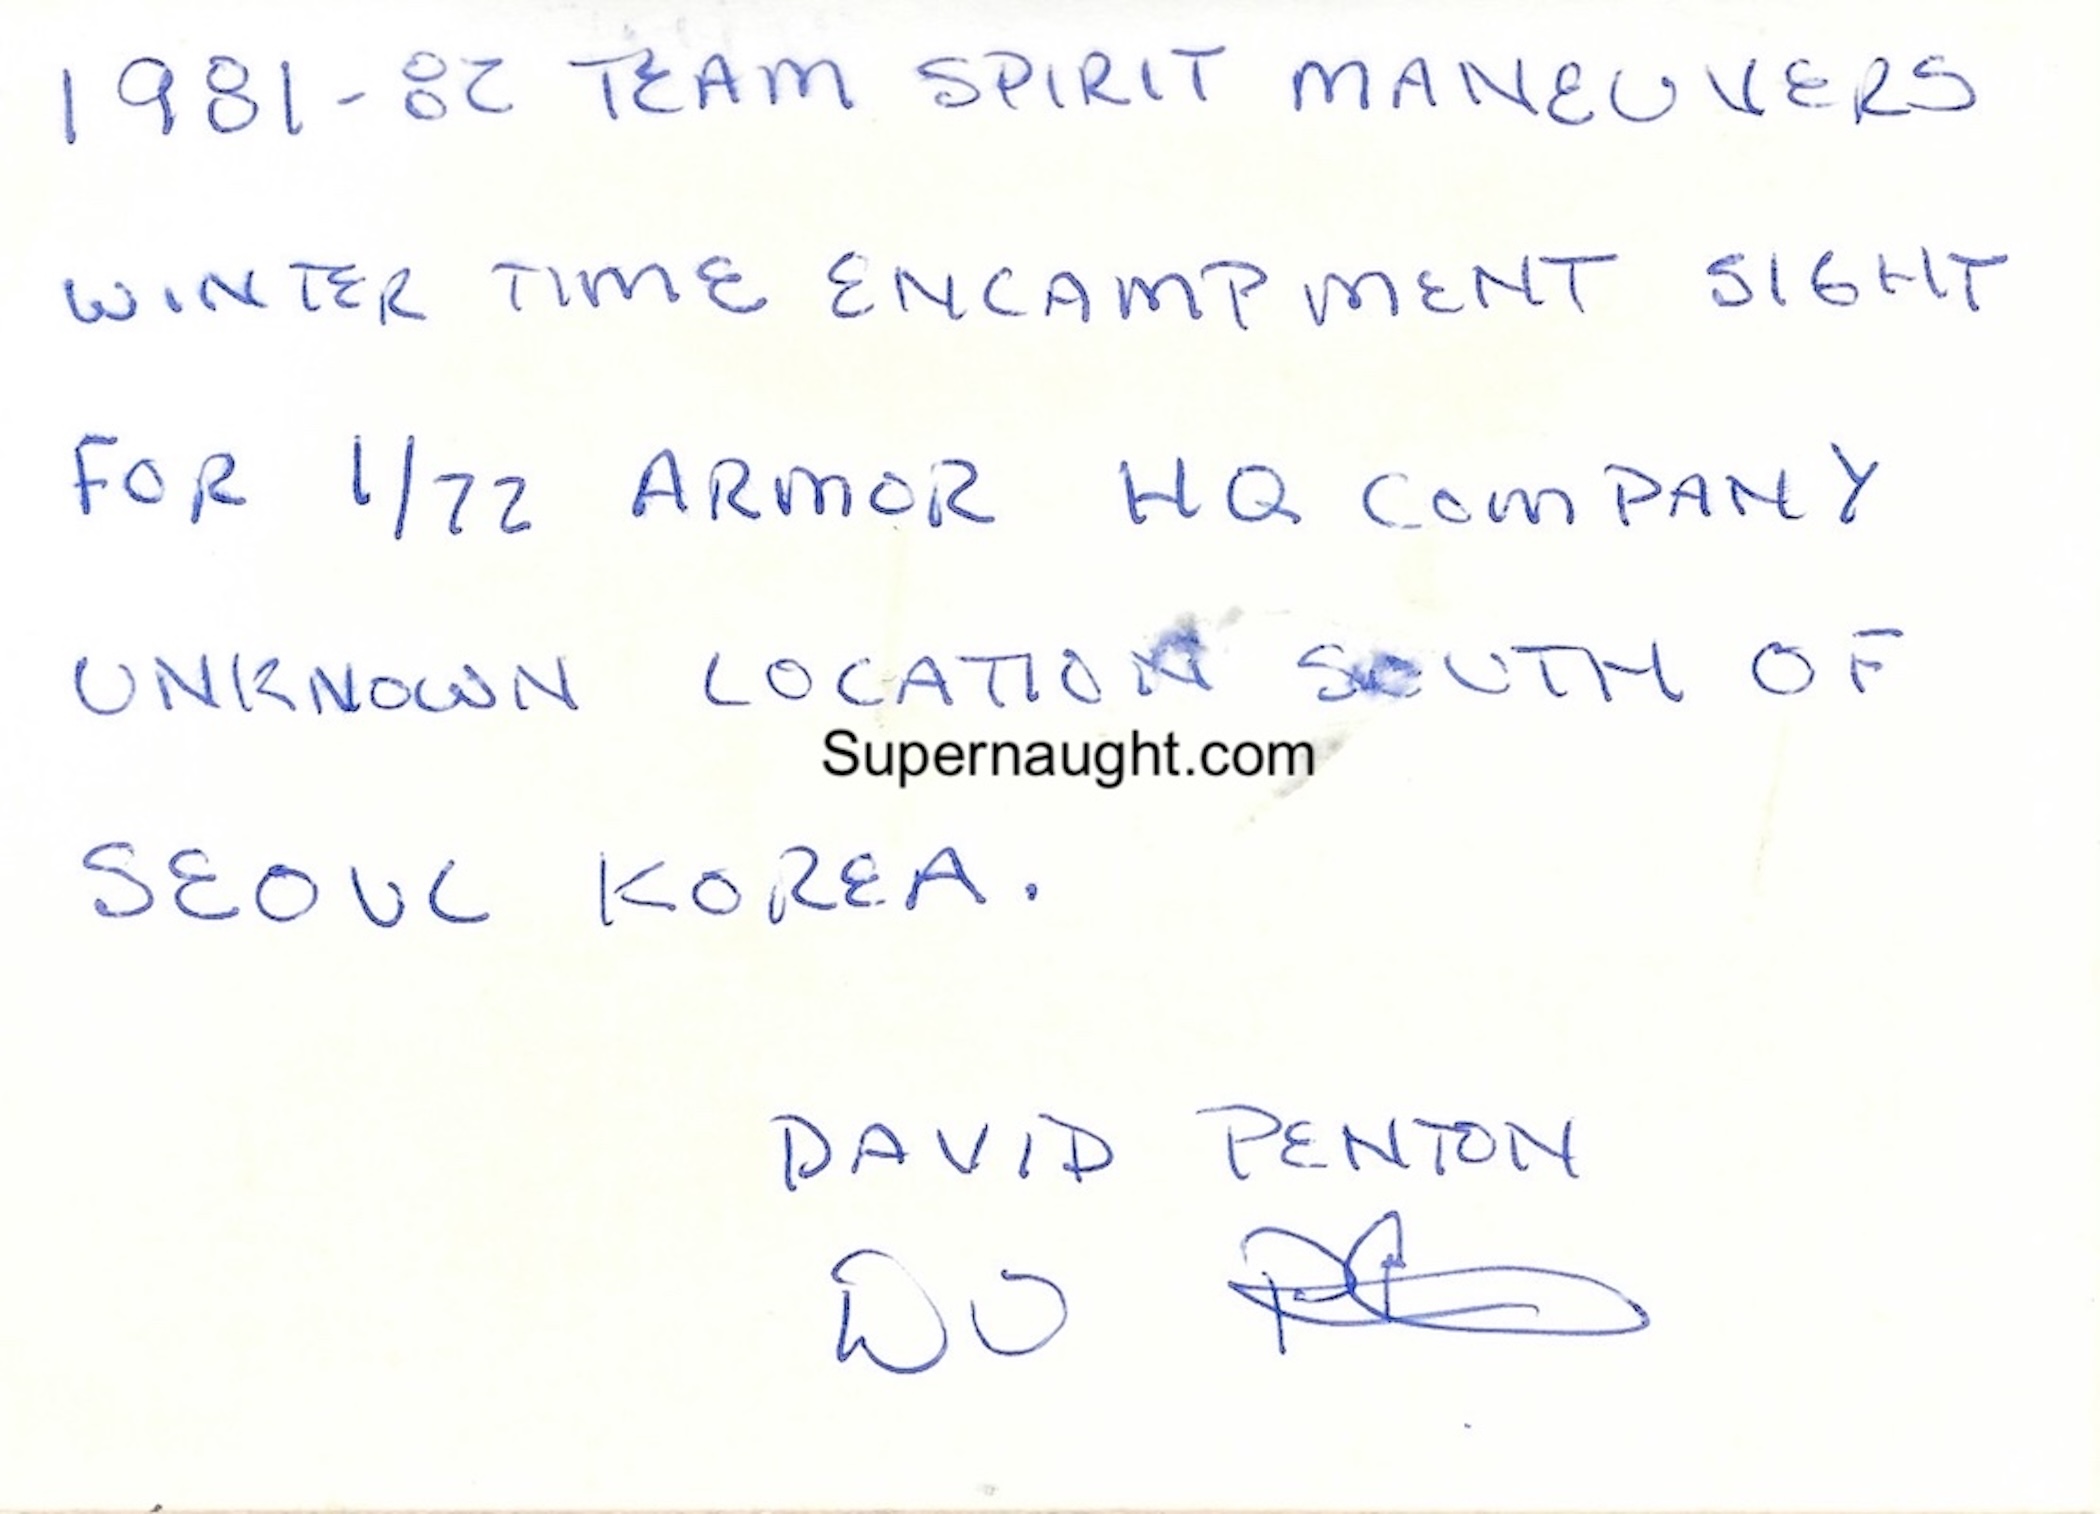 1981-82 TEAM SPIRIT MANEUVERS
WINTER TIME ENCAMPMENT SIGHT
FOR 1/72 ARMOR HQ COMPANY
UNKNOWN LOCATION SOUTH OF
Supernaught.com
SEOUL KOREA.
DAVID PENTON